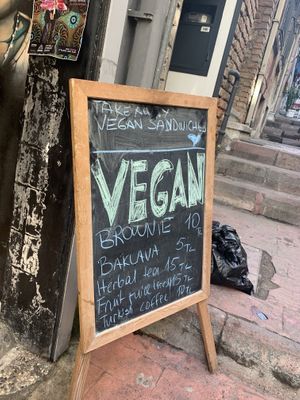 TAKE AWAY
VEGAN SANDWICHES
VEGAN
BROWNIE 10 TL
BAKLAVA 5TL
Herbal tea 15 TL
Fruit juice 15TL
Turkish coffee 10TL